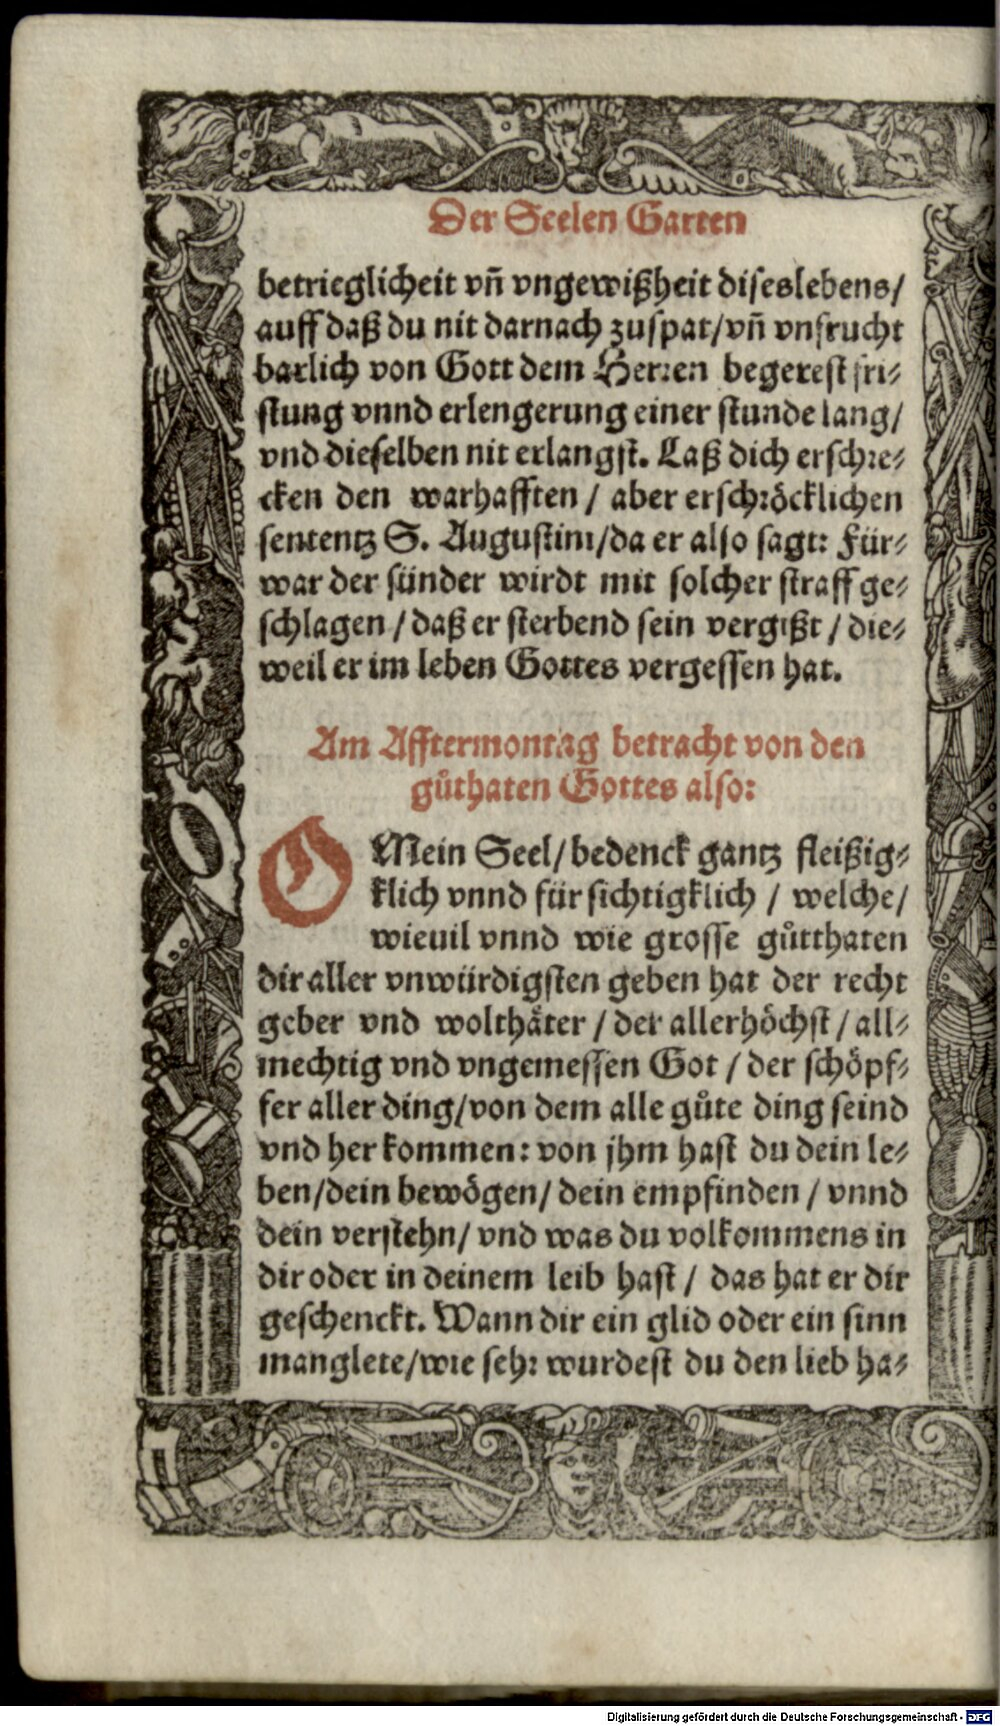 Der Seelen Garten
betrieglicheit vñ vngewißheit diseslebens/
auff daß du nit darnach zuspat/vñ vnfrucht
barlich von Gott dem Herren begerest fri⸗
stung vnnd erlengerung einer stunde lang/
vnd dieselben nit erlangst. Laß dich erschre⸗
cken den warhafften / aber erschröcklichen
sententz S. Augustini/da er also sagt: Für⸗
war der sünder wirdt mit solcher straff ge⸗
schlagen / daß er sterbend sein vergißt / die⸗
weil er im leben Gottes vergessen hat.
Am Afftermontag betracht von den
gůthaten Gottes also:
O Mein Seel/bedenck gantz fleißig⸗
klich vnnd fürsichtigklich / welche/
wieuil vnnd wie grosse gůtthaten
dir aller vnwürdigsten geben hat der recht
geber vnd wolthäter / der allerhöchst / all⸗
mechtig vnd vngemessen Got / der schöpf⸗
fer aller ding/von dem alle gůte ding seind
vnd her kommen: von jhm hast du dein le⸗
ben/dein bewögen/ dein empfinden / vnnd
dein verstehn/ vnd was du volkommens in
dir oder in deinem leib hast / das hat er dir
geschenckt. Wann dir ein glid oder ein sinn
manglete/wie sehr wurdest du den lieb ha⸗
Digitalisierung gefördert durch die Deutsche Forschungsgemeinschaft - DFG